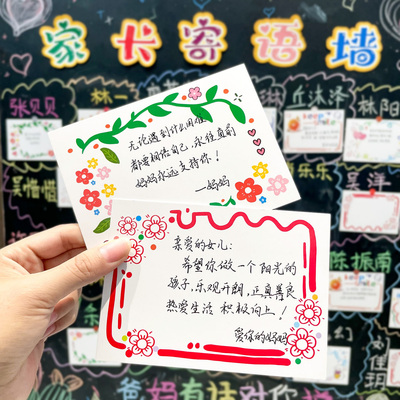 家长寄语墙
张贝贝
林一
丘沐泽
林阳
无论遇到什么困难
都要相信自己,永往直前
妈妈永远支持你!
—妈妈
乐乐
陈振南
亲爱的女儿:
希望你做一个阳光的
孩子,乐观开朗,正真善良
热爱生活 积极向上!
爱你的妈妈
爸妈有话对你